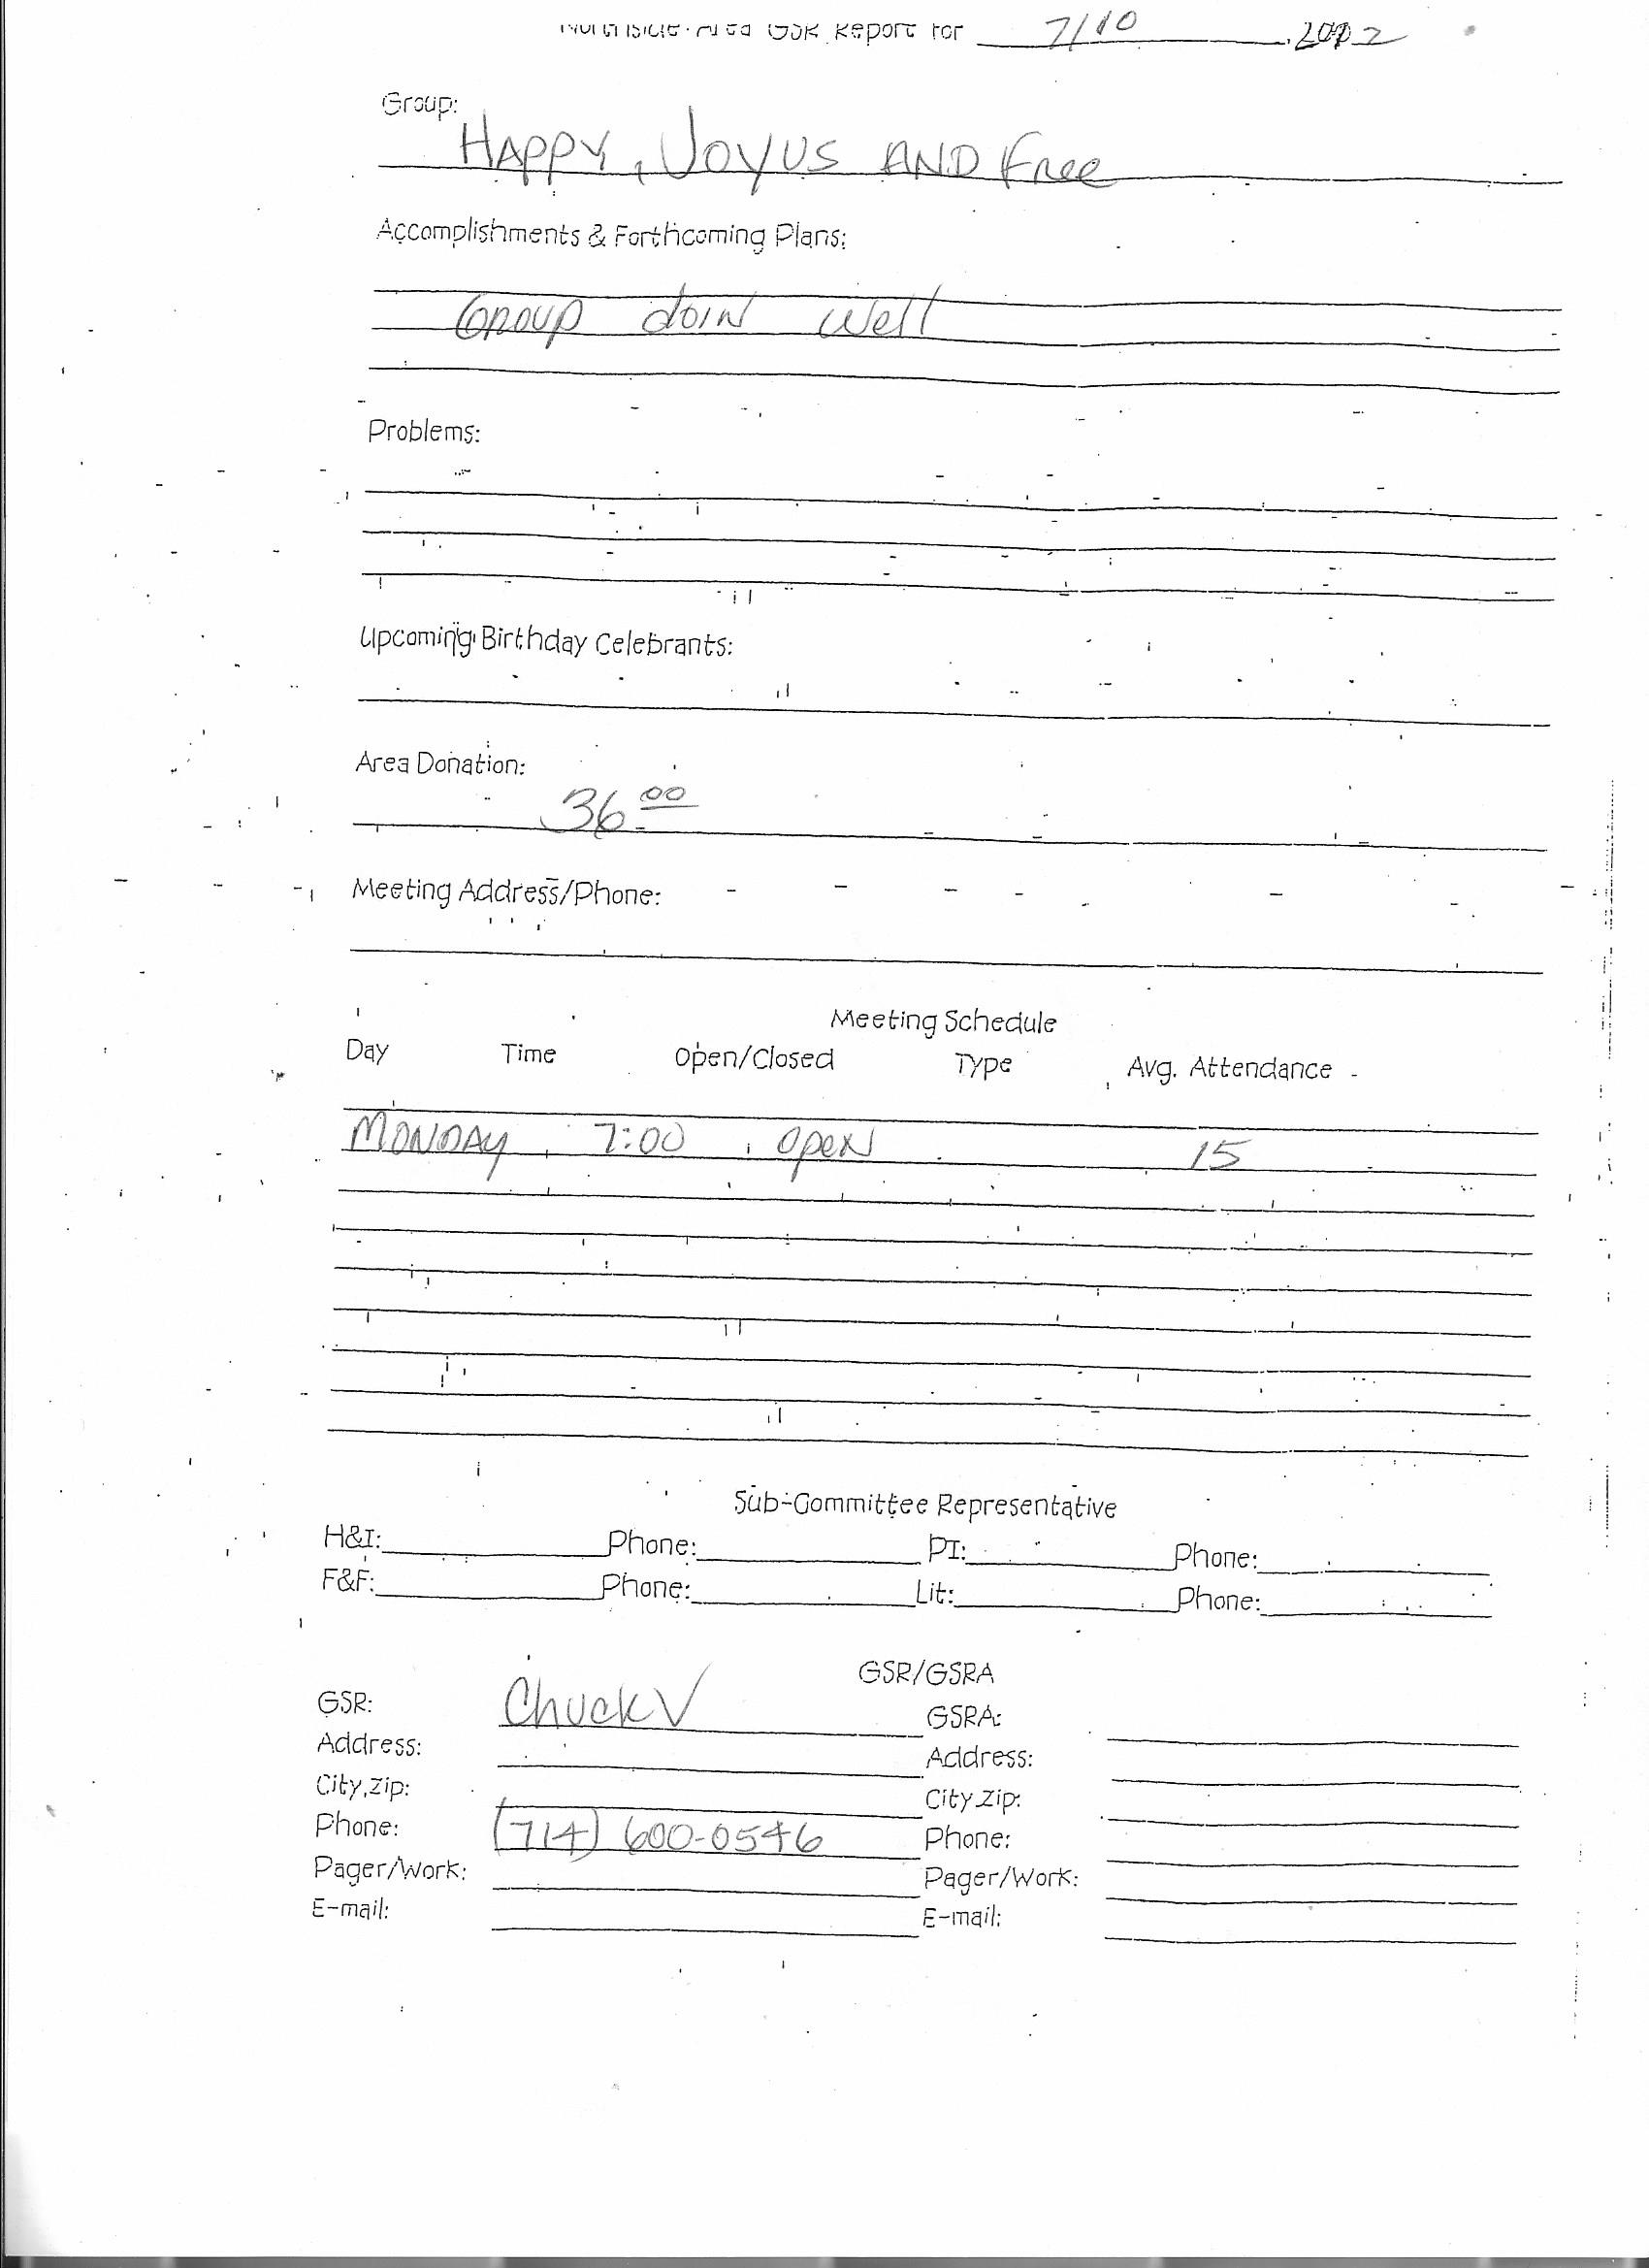 Area GSR Report for 7/10
Group:
HAPPY, JOYUS AND Free
Accomplishments & Forthcoming Plans:
Group doin well
Problems:
Upcoming Birthday Celebrants:
Area Donation:
36.00
Meeting Address/Phone:
Meeting Schedule
Day Time Open/Closed Type Avg. Attendance
MONDAY 7:00 open 15
Sub-Committee Representative
H&I: Phone: PI: Phone:
F&F: Phone: Lit: Phone:
GSR/GSRA
GSR: Chuck V GSRA:
Address: Address:
City,Zip: City,Zip:
Phone: (714) 600-0546 Phone:
Pager/Work: Pager/Work:
E-mail: E-mail: